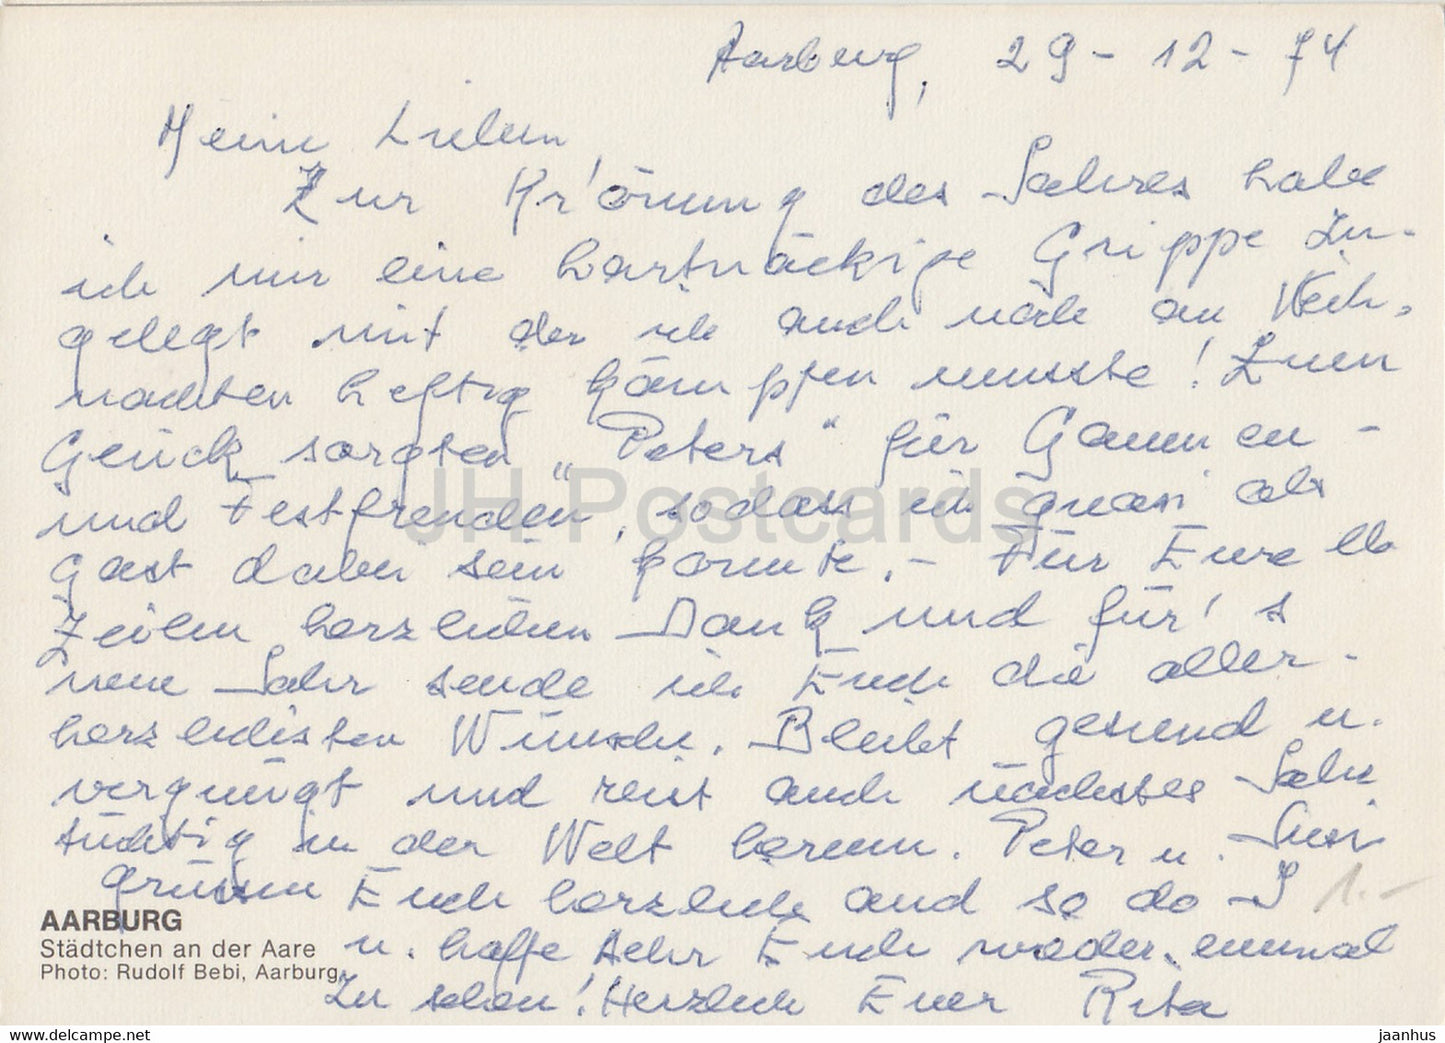 Aarburg, 29-12-74
Meine Lieben,
Zur Krönung des Jahres habe
ich mir eine hartnäckige Grippe zu-
gelegt mit der ich auch noch an Weih-
nachten heftig kämpfen musste! Zum
Glück sorgten "Peters" für Gaumen-
und Festfreuden, sodass ich quasi als
Gast dabei sein konnte. – Für Eure lb
Zeilen herzlichen Dank und für's
neue Jahr sende ich Euch die aller-
herzlichsten Wünsche. Bleibt gesund u.
vergnügt und reist auch nächstes Jahr
tüchtig in der Welt herum. Peter u. Susi
grüssen Euch herzlich and so do I
u. hoffe sehr Euch wieder einmal
zu sehen! Herzlich Eure Rita
1.-
AARBURG
Städtchen an der Aare
Photo: Rudolf Bebi, Aarburg
JH Postcards
www.delcampe.net
jaanhus